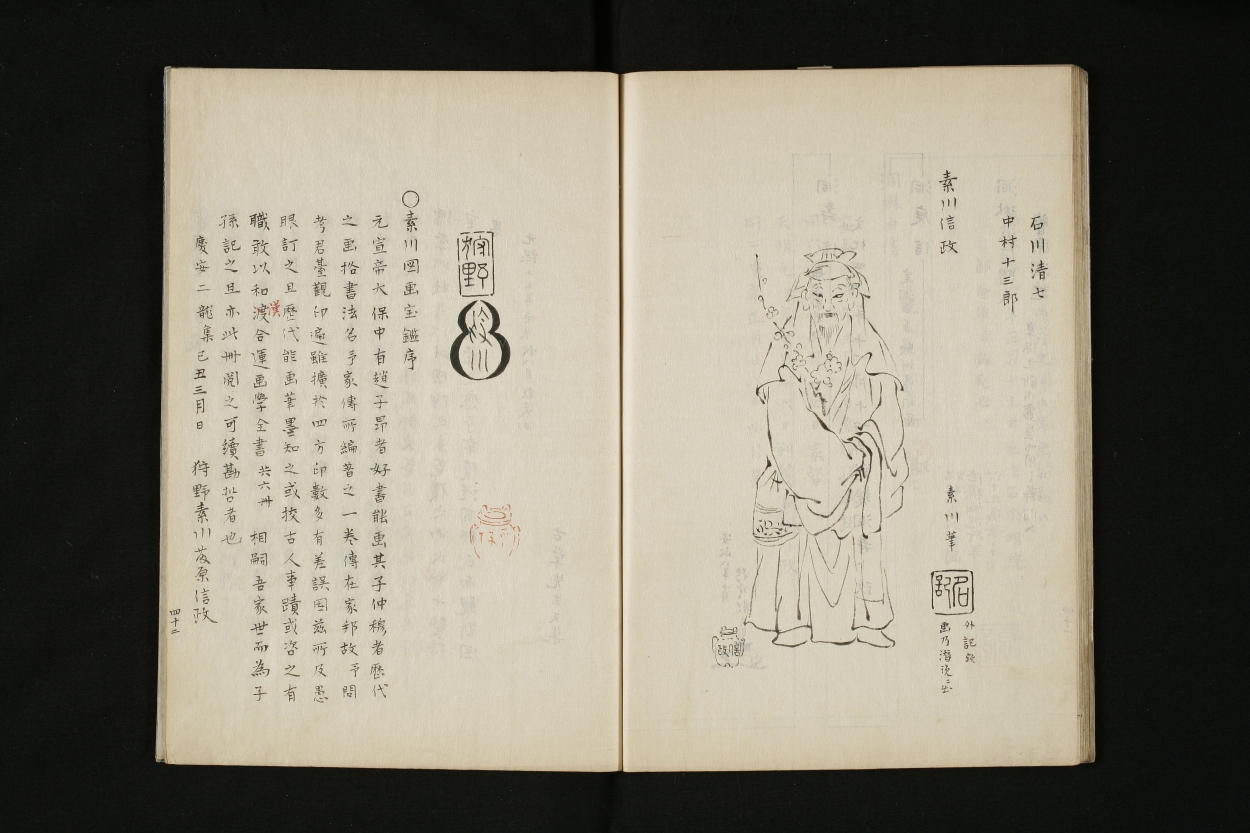 石川清七
中村十三郎
素川信政
素川筆
外記歟
狩野
素川
○素川図画宝鑑序
元宣帝大保中有趙子昂者好書能画其子仲穆者歴代
之画格書法名予家傳所編著之一巻傳在家邦故予閲
考君臺觀印遍雖擴於四方印數多有差誤因茲所及愚
眼訂之且歴代能画筆墨知之或按古人事蹟或咨之有
職敢以和渡合運画學全書共六冊相嗣吾家世而為子
漢
孫記之且亦此冊閲之可續勘哲者也
慶安二龍集己丑三月日 狩野素川藤原信政
四十二